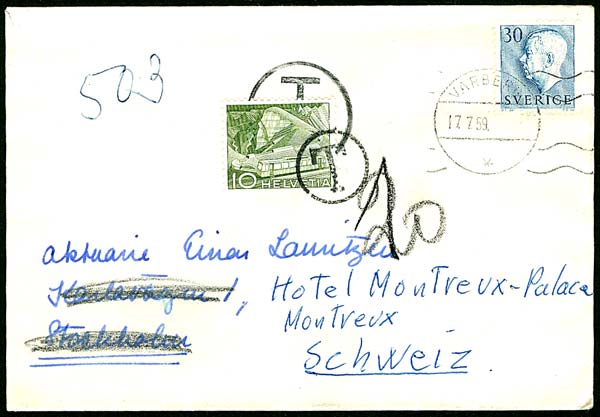 503
T
30
SVERIGE
VARBERG
17.7.59.
T
10 HELVETIA
20
Aktuarie Einar Lauritzen
Karlavägen 1, Hotel Montreux-Palace
Stockholm Montreux
Schweiz